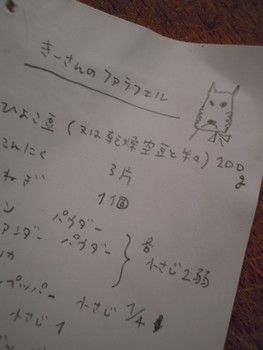 きーさんのファラフェル
ひよこ豆 (又は乾燥空豆と半々) 200g
んにく 3片
ねぎ 1/1個
ン パウダー
アンダー パウダー } 各小さじ2弱
カ
ペッパー 小さじ 1/4
小さじ 1